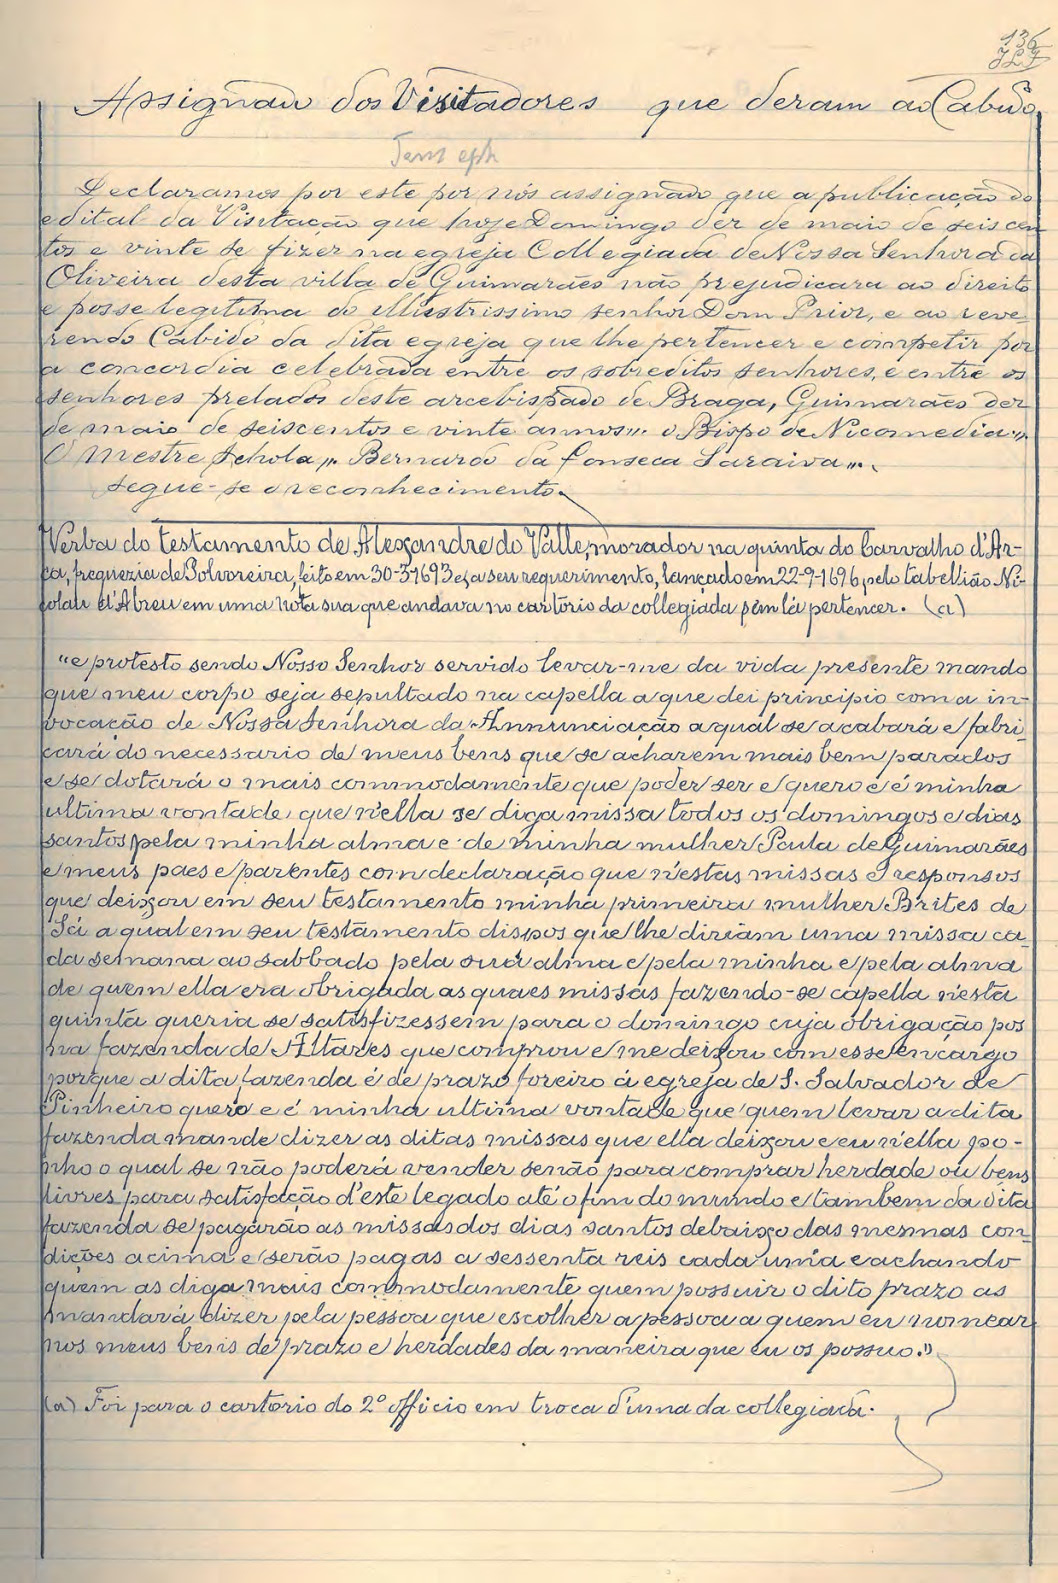 136
Assignão dos Visitadores que deram ao Cabido
Declaramos por este por nós assignão que a publicação do
edital da Visitação que hoje Domingo dez de maio de seiscen
tos e vinte se fizer na egreja Collegiada de Nossa Senhora da
Oliveira desta villa de Guimarães não prejudicara ao direito
e posse legitima do illustrissimo senhor Dom Prior, e ao reve-
rendo Cabido da dita egreja que lhe pertencer e competir por
a concordia celebrada entre os sobreditos senhores, e entre os
senhores prelados deste arcebispado de Braga, Guimarães dez
de maio de seiscentos e vinte annos,,. o Bispo de Nicomedia,,.
O Mestre Schola,,. Bernardo da Fonseca Saraiva,,.
segue-se o reconhecimento.
Verba do testamento de Alexandre do Valle, morador na quinta do Carvalho d'Ar-
ca, freguezia de Polvoreira, feito em 30-3-1693 e, a seu requerimento, lançado em 22-9-1696, pelo tabellião Ni-
colau d'Abreu em uma nota sua que andava no cartorio da collegiada sem lá pertencer. (a)
"e protesto sendo Nosso Senhor servido levar-me da vida presente mando
que meu corpo seja sepultado na capella a que dei principio com a in-
vocação de Nossa Senhora da Annunciação a qual se acabará e fabri-
cará do necessario de meus bens que se acharem mais bem parados
e se dotará o mais commodamente que poder ser e quero e é minha
ultima vontade que n'ella se diga missa todos os domingos e dias
santos pela minha alma e de minha mulher Paula de Guimarães
e meus paes e parentes com declaração que n'estas missas e responsos
que deixou em seu testamento minha primeira mulher Brites de
Sá a qual em seu testamento dispos que lhe diriam uma missa ca-
da semana ao sabbado pela sua alma e pela minha e pela alma
de quem ella era obrigada as quaes missas fazendo-se capella n'esta
quinta queria se satisfizessem para o domingo cuja obrigação pos
na fazenda de Altares que comprou e me deixou com esse encargo
porque a dita fazenda é de prazo foreiro á egreja de S. Salvador de
Pinheiro quero e é minha ultima vontade que quem levar a dita
fazenda mande dizer as ditas missas que ella deixou e eu n'ella po-
nho o qual se não poderá vender senão para comprar herdade ou bens
livres para satisfação d'este legado até o fim do mundo e tambem da dita
fazenda se pagarão as missas dos dias santos debaixo das mesmas con-
dições acima e serão pagas a sessenta reis cada uma e achando
quem as diga mais commodamente quem possuir o dito prazo as
mandará dizer pela pessoa que escolher a pessoa a quem eu nomear
nos meus bens de prazo e herdades da maneira que eu os possuo."
(a) Foi para o cartorio do 2º officio em troca d'uma da collegiada.